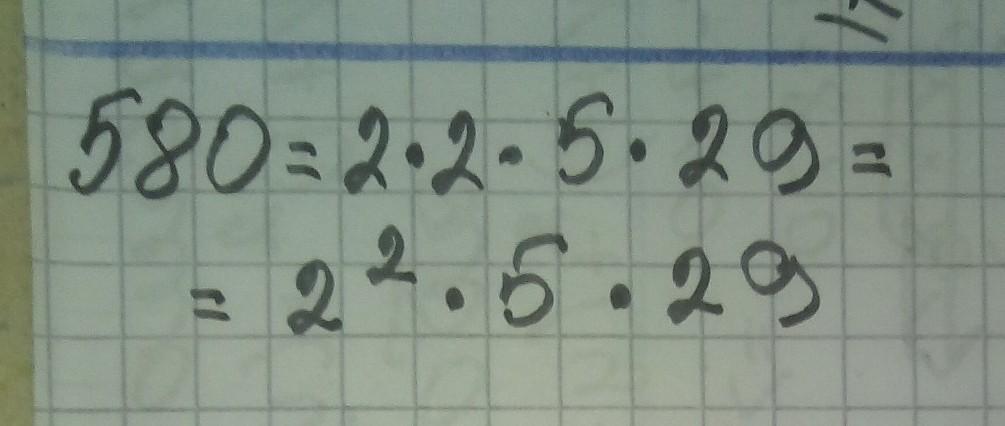 580=2·2·5·29=
=2²·5·29